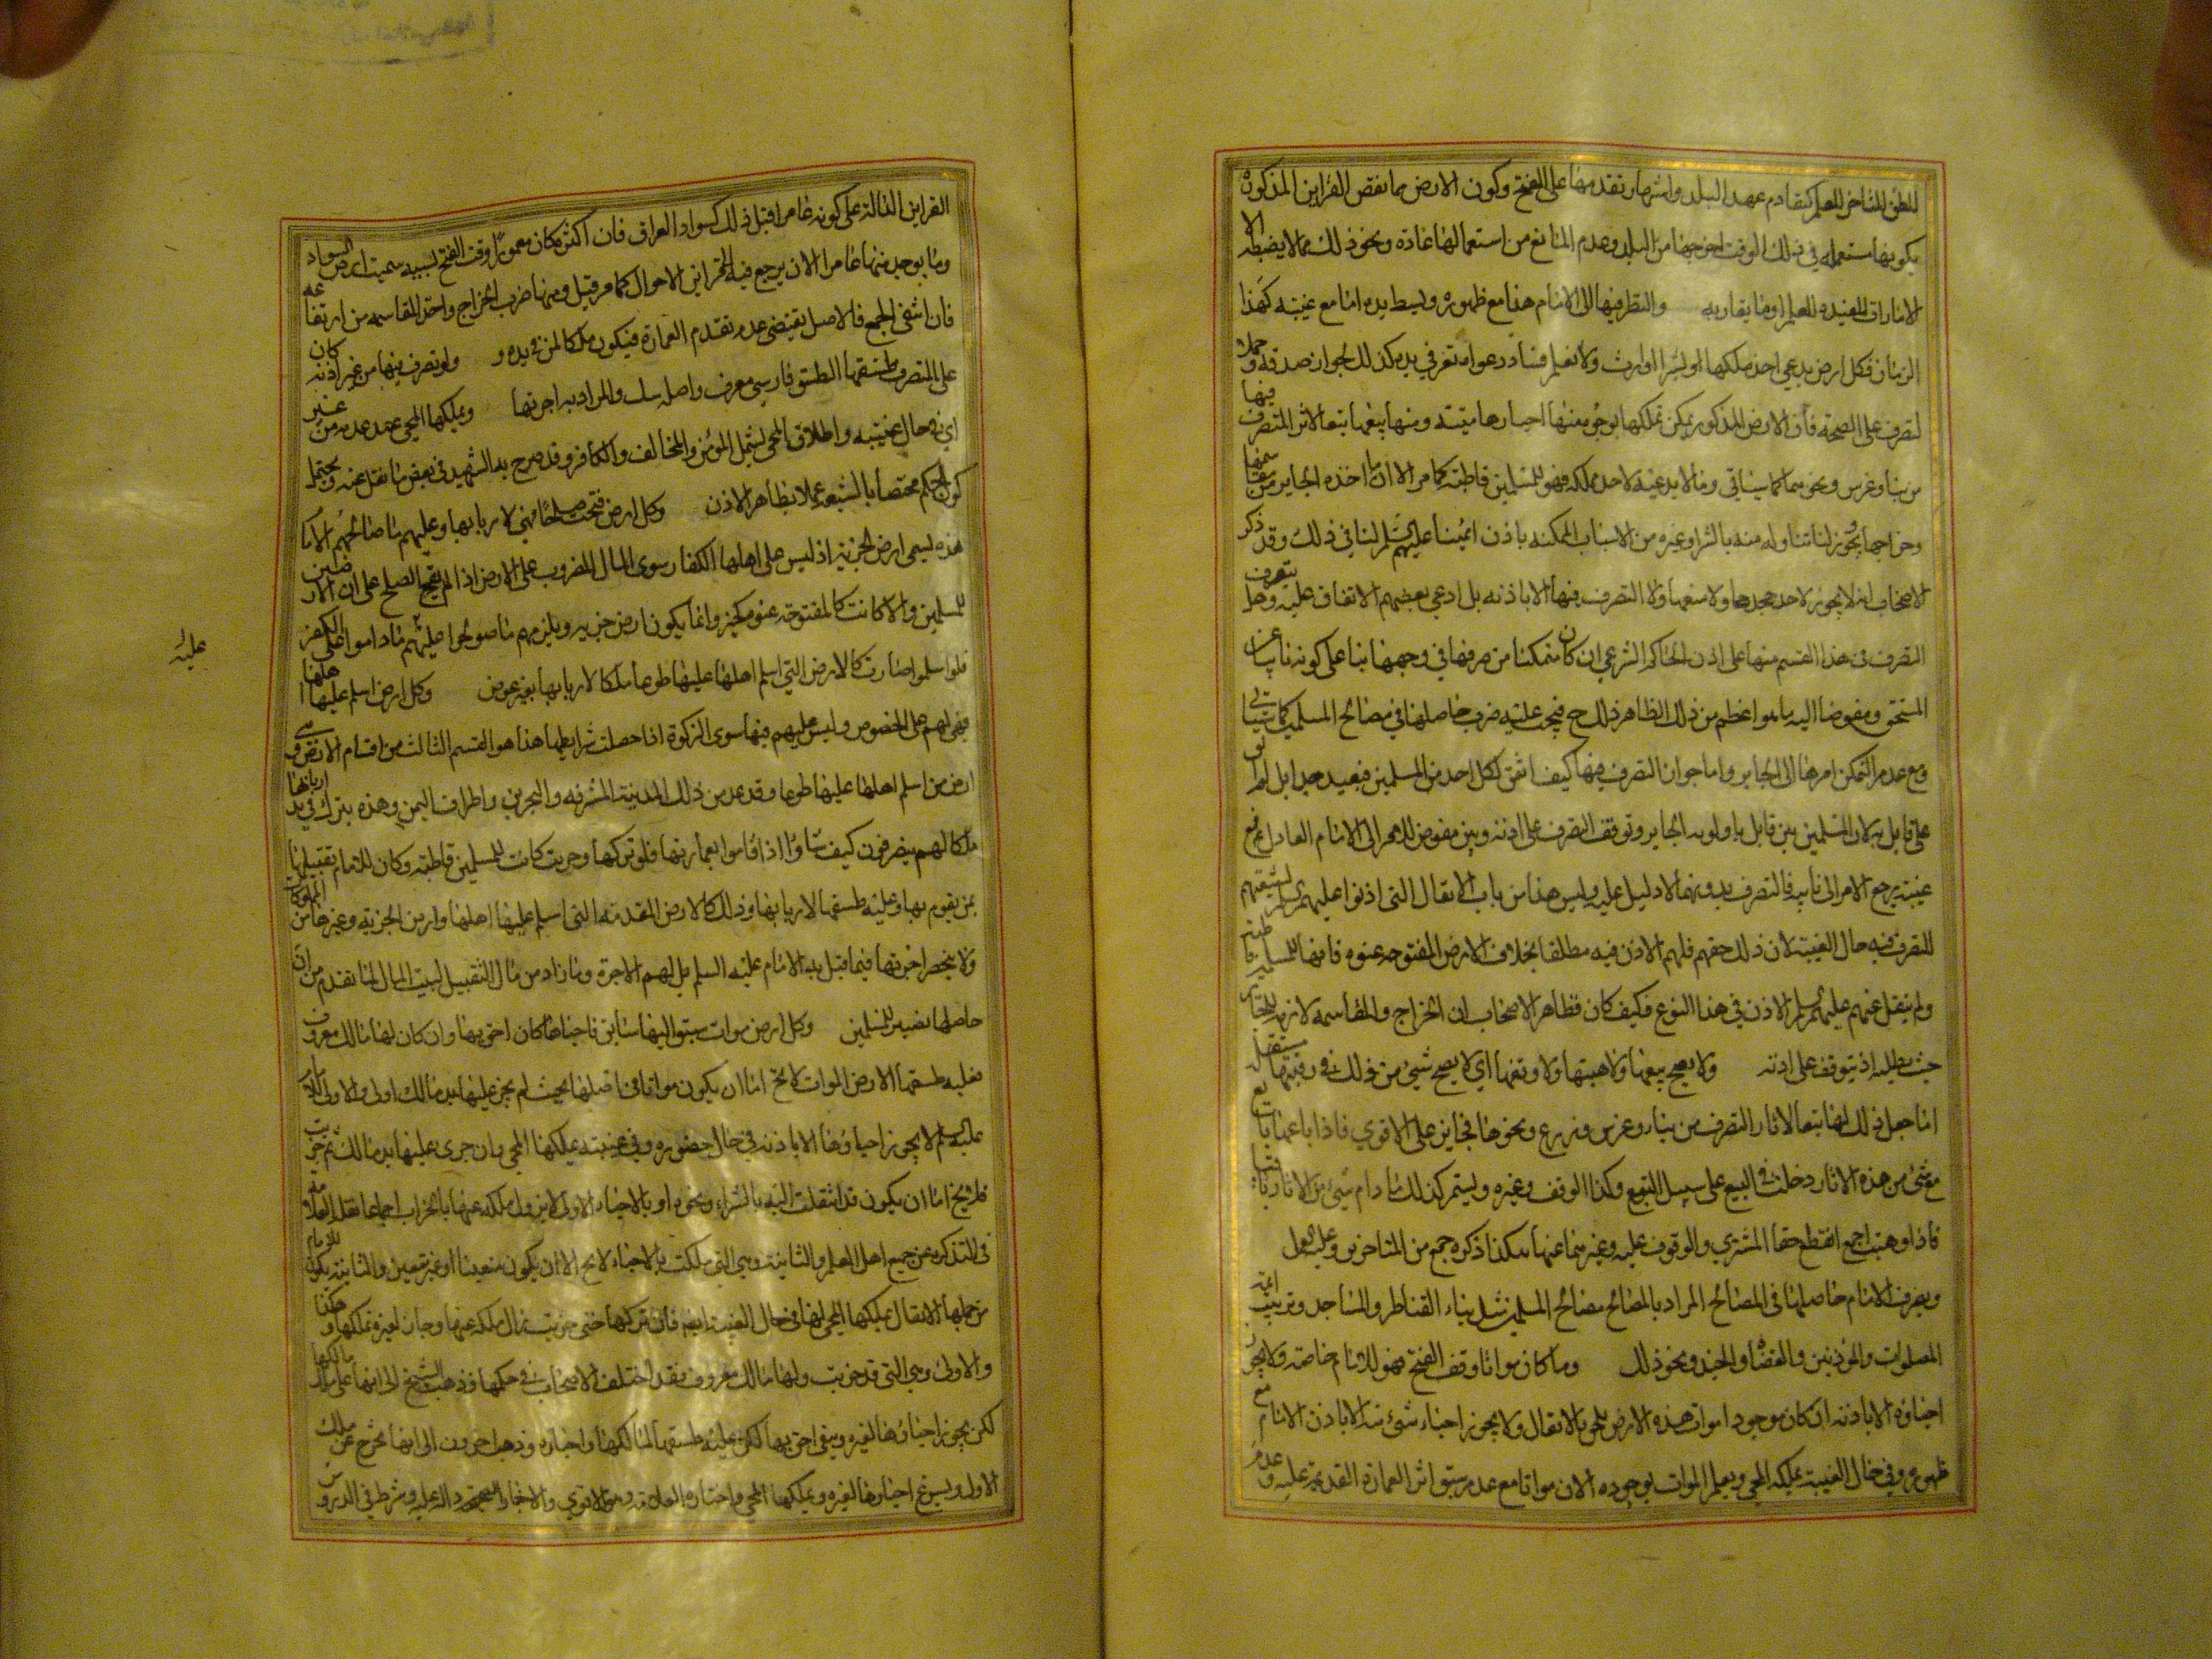 للظن المتاخر للعلم كتقادم عهد البلد واشتهار تقدمها على الفتح وكون الارض مما تقضى القراين المذكورة
بكونها مستعملة في ذلك الوقت لقربها من البلد وعدم المانع من استعمالها عادة ونحو ذلك مما لا يضبط الا
الامارات المفيدة للعلم او ما يقاربه والنظر فيها الى الامام هذا مع ظهوره وبسط يده اما مع غيبته كهذا
الزمان فكل ارض يدعي احد ملكها او الوارث ولا نعلم فساد دعواه تقر في يده كذلك لجواز صدقه وحملا
لتصرفه على الصحة فان الارض المذكورة يمكن تملكها بوجوه منها احياؤها ميتة ومنها بيعها تبعا لاثر المتصرف فيها
من بناء وغرس ونحوهما كما سياتي وما لا يد عليه لاحد مملكة فهو للمسلمين قاطبة كما مر الا ان ما اخذه الجاير من مقاسمتها
وخراجها يجوز لنا تناوله منه بالشراء وغيره من الاسباب المملكة باذن ائمتنا عليهم السلم لنا في ذلك وقد ذكر
الاصحاب انه لا يجوز لاحد جحدهما ولا منعهما ولا التصرف فيهما الا باذنه بل ادعى بعضهم الاتفاق عليه وهل يتوقف
التصرف في هذا القسم منها على اذن الحاكم الشرعي ان كان متمكنا من صرفها في وجهها بناء على كونه نايبا عن
المستحق ومفوضا اليه ما هو اعظم من ذلك الظاهر ذلك وح فيجب عليه صرف حاصلها في مصالح المسلمين كما سياتي
ومع عدم التمكن امرها الى الجاير واما جواز التصرف فيها كيف اتفق لكل احد من المسلمين فبعيد جدا بل لم اقف
على قايل به لان المسلمين بين قايل باولوية الجاير وتوقف التصرف على اذنه وبين مفوض للامر الى الامام العادل فمع
غيبته يرجع الامر الى نايبه فالتصرف بدونهما لا دليل عليه وليس هذا من باب الانفال التي اذنوا عليهم السلم لشيعتهم
للتصرف فيه حال الغيبة لان ذلك حقهم فلهم الاذن فيه مطلقا بخلاف الارض المفتوحة عنوة فانها للمسلمين قاطبة
ولم ينقل عنهم عليهم السلم الاذن في هذا النوع وكيف كان فظاهر الاصحاب ان الخراج والمقاسمة لازم للجاير
حيث يطلبه او يتوقف على اذنه ولا يصح بيعها ولا هبتها ولا وقفها اي لا يصح شيئ من ذلك في رقبتها مستقلة
اما جعل ذلك لها تبعا لاثار التصرف من بناء وغرس وزرع ونحوها فجايز على الاقوى فاذا باعها بايع
مع شئ من هذه الاثار دخلت في البيع على سبيل التبع وكذا الوقف وغيره ويستمر كذلك ما دام شئ من الاثار باقيا
فاذا ذهبت اجمع انقطع حق المشتري والموقوف عليه وغيرهما عنها هكذا ذكره جمع من المتاخرين وعليه العمل
ويصرف الامام حاصلها في المصالح المراد بالمصالح مصالح المسلمين مثل بناء القناطر والمساجد وترتيب ائمة
الصلوات والمؤذنين والقضاة والجند ونحو ذلك وما كان مواتا وقت الفتح فهو للامام خاصة ولا يجوز
احياؤه الا باذنه ان كان موجودا موات هذه الارض ملحق بالانفال ولا يجوز احياء شئ منه الا باذن الامام مع
ظهوره وفي حال الغيبة يملكه المحيي ويعلم الموات بوجوده الان مواتا مع عدم سبق اثر العمارة القديمة عليه وعدم
القراين الدالة على كونه عامرا قبل ذلك كسواد العراق فان اكثره كان معمورا وقت الفتح لسببه سميت ارض السواد
وما يوجد منها عامرا الان يرجع فيه الى قراين الاحوال كما مر قبل ومنها ضرب الخراج واخذ المقاسمة من ارتفاعه
فان انتفى الجميع فالاصل يقتضي عدم تقدم العمارة فيكون ملكا لمن في يده ولو تصرف فيها من غير اذنه كان
على المتصرف طسقها الطسق فارسي معرب واصله تسك والمراد به اجرتها ويملكها المحيي عند عدمه من غير
اي في حال غيبته واطلاق المحيي يشمل المؤمن والمخالف والكافر وقد صرح به الشهيد في بعض ما نقل عنه ويحتمل
كون الحكم مختصا بالشيعة عملا بظاهر الاذن وكل ارض فتحت صلحا فهي لاربابها وعليهم ما صالحهم الامام
هذه تسمى ارض الجزية اذ ليس على اهلها الكفار سوى المال المضروب على الارض اذا لم يقع الصلح على ان الارضين
للمسلمين والا كانت كالمفتوحة عنوة وانما يكون ارض جزية ويلزمهم ما صولحوا عليه مادام اهلها على الكفر
فلو اسلموا صارت كالارض التي اسلم اهلها عليها طوعا ملكا لاربابها بغير عوض وكل ارض اسلم عليها اهلها
فهي لهم على الخصوص وليس عليهم فيها سوى الزكوة اذا حصلت شرايطها هذا هو القسم الثالث من اقسام الارض وهي
ارض من اسلم اهلها عليها طوعا وقد عد من ذلك المدينة المشرفة والبحرين واطراف اليمن وهذه يترك في يد اربابها
ملكا لهم يتصرفون كيف شاؤا اذا قاموا بعمارتها فلو تركوها وخربت كانت للمسلمين قاطبة وكان للامام تقبيلها
ممن يقوم بها وعليه طسقها لاربابها وذلك كالارض المقدمة التي اسلم عليها اهلها وارض الجزية وغيرها من المملوكات
ولا ينحصر اجرتها فيما قبل به الامام عليه السلم بل لهم الاجرة وما زاد من مال التقبيل لبيت المال لما تقدم من ان
حاصلها يصير للمسلمين وكل ارض موات سبق اليها سابق فاحياها كان احق بها وان كان لها مالك معروف
فعليه طسقها الارض الموات لا يخ اما ان يكون مواتا في اصلها بحيث لم يجر عليها يد مالك اولى والاولى للامام
عليه السلم لا يجوز احياؤها الا باذنه في حال حضوره وفي غيبته يملكها المحيي وان جرى عليها يد مالك ثم خربت
فلا يخ اما ان يكون قد انتقلت اليه بالشراء ونحوه او بالاحياء الاولى لا يزول ملكه عنها بالخراب اجماعا نقله العلامة
في التذكرة عن جميع اهل العلم والثانية وهي التي ملكت بالاحياء لا يخ الا ان يكون متعينا او غير متعين والثانية يكون للامام
من جملة الانفال يملكها المحيي لها في حال الغيبة ايضا فان تركها حتى خربت زال ملكه عنها وجاز لغيره تملكها وهكذا
والاولى وهي التي قد خربت ولها مالك معروف فقد اختلف الاصحاب في حكمها فذهب الشيخ الى انها على ملك مالكها
لكن يجوز احياؤها لغيره ويبقى احق بها لكن عليه طسقها لمالكها واحياؤه وذهب اخرون الى انها تخرج عن ملك
الاول ويسوغ احياؤها لغيره ويملكها المحيي واختاره العلامة وهو الاقوى والاخبار الصحيحة دالة عليه وشرط في الدروس
عليه